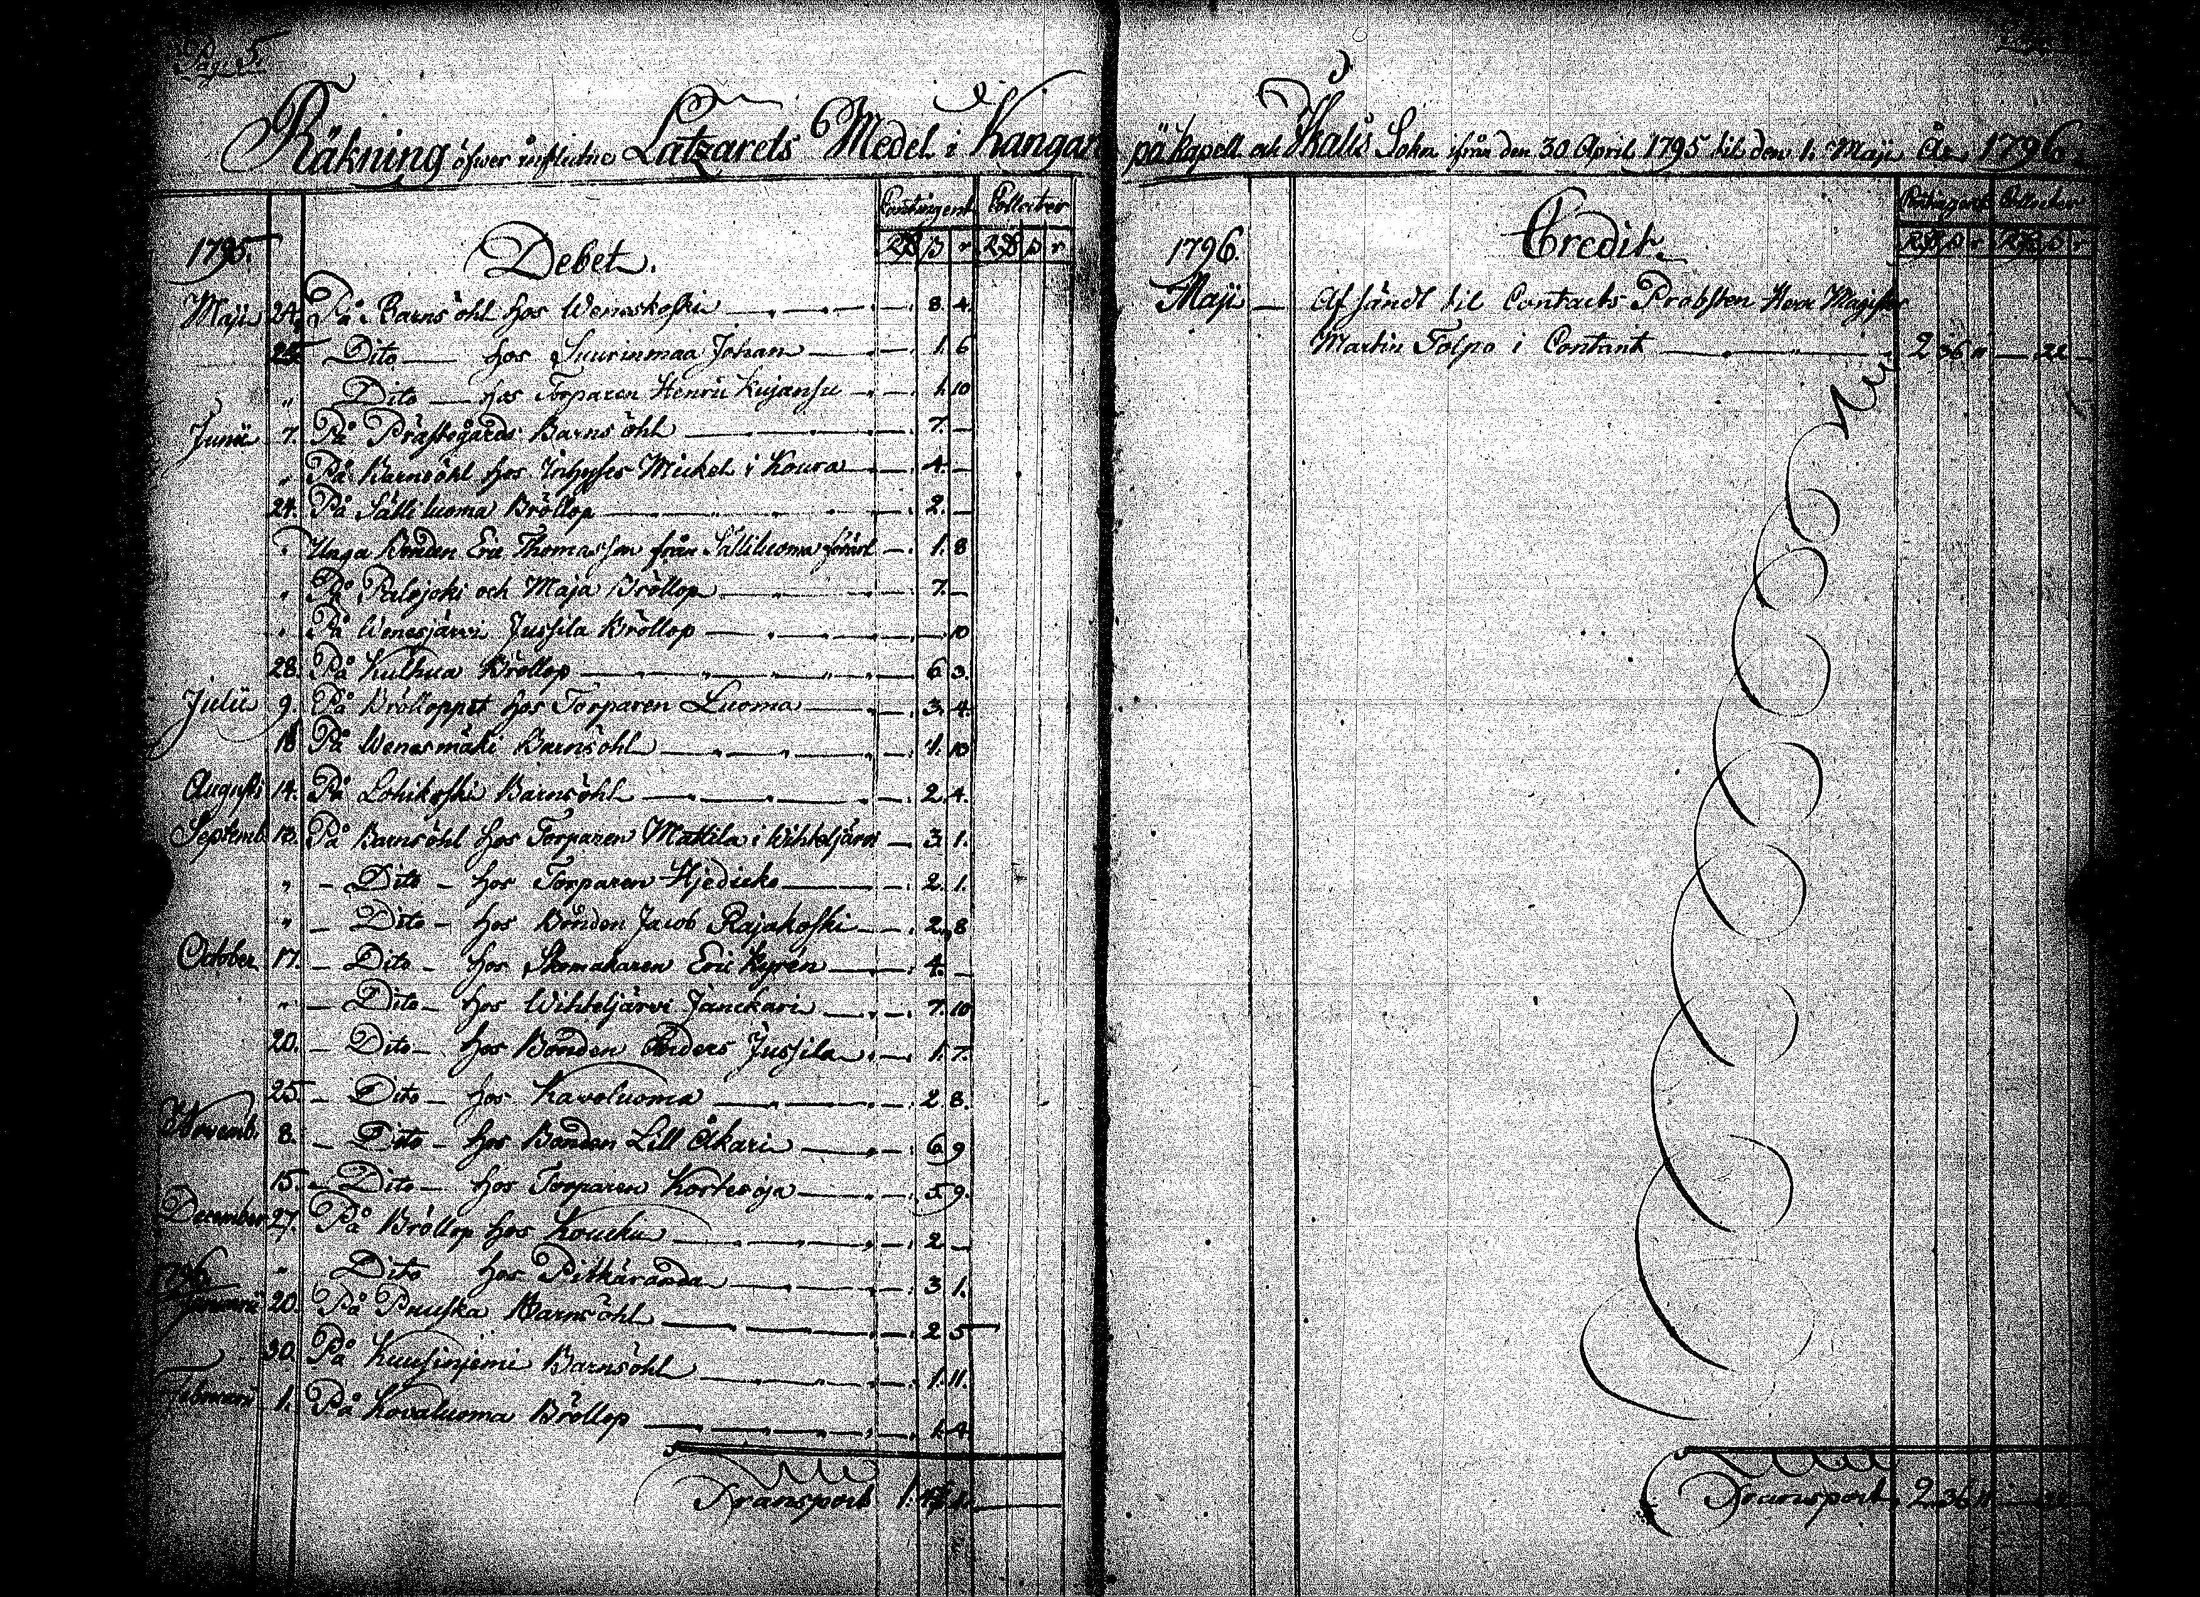 Pag. 5.
Räkning öfwer influtne Latzarets Medel i Kangar
1795.
Debet.
Contingent Collecter
Rd ß r Rd ß r
Maji 24. På Barnsöhl hos Weneskoski — 8. 4.
25 Dito — hos Suurinmaa Johan — 1. 6
" Dito — hos Torparen Henric Kujansu — 1. 10
Junii 7. På Prästegårds Barnsöhl — 7. —
" På Barnsöhl hos Mickel i Koura — 4. —
24. På Sälliluoma Bröllop — 2. —
" Unga Bonden Eric Thomasson från Sälliluoma — 1. 8
" På Palojoki och Maja Bröllop — 7. —
" På Wenesjärvi Jussila Bröllop — 10
28. På Kulhua Bröllop — 6 3.
Julii 9. På Brölloppet hos Torparen Luoma — 3. 4.
18 På Wenesmäki Barnsöhl — 4. 10
Augusti 14. På Lohikoski Barnsöhl — 2. 4.
Septemb. 13. På Barnsöhl hos Torparen Mattila i Wihteljärvi — 3. 1.
" — Dito — hos Torparen Hjedicko — 2. 1.
" — Dito — hos Bonden Jacob Rajakoski — 2. 8
October 17. — Dito — hos Skomakaren Eric Kyrén — 4. —
" — Dito — hos Wihteljärvi Jänckäri — 7. 10
20. — Dito — hos Bonden Anders Jussila — 1. 7.
25 — Dito — hos Kavoluoma — 2. 8.
Novemb. 8. — Dito — hos Bonden Lill Åkari — 6. 9
15. — Dito — hos Torparen Kortesoja — 5 9.
December 27. På Bröllop hos Koucku — 2 —
" Dito hos Pitkäranda — 3 1.
1796
Januarii 20. På Pruska Barnsöhl — 2 5
30. På Kuusinjemi Barnsöhl — 1. 11.
Februarii 1. På Kovaluoma Bröllop — 1. 4.
Transport 1.
på Kapell och Ikalis Sokn ifrån den 30 April 1795 til den 1. Maji År 1796.
1796.
Credit.
Contingent Collecter
Rd ß r Rd ß r
Maji — Afsändt til Contracts Probsten Herr Magister
Martin Tolpo i Contant — 2 36 11 —
Transport 2 36 11 —